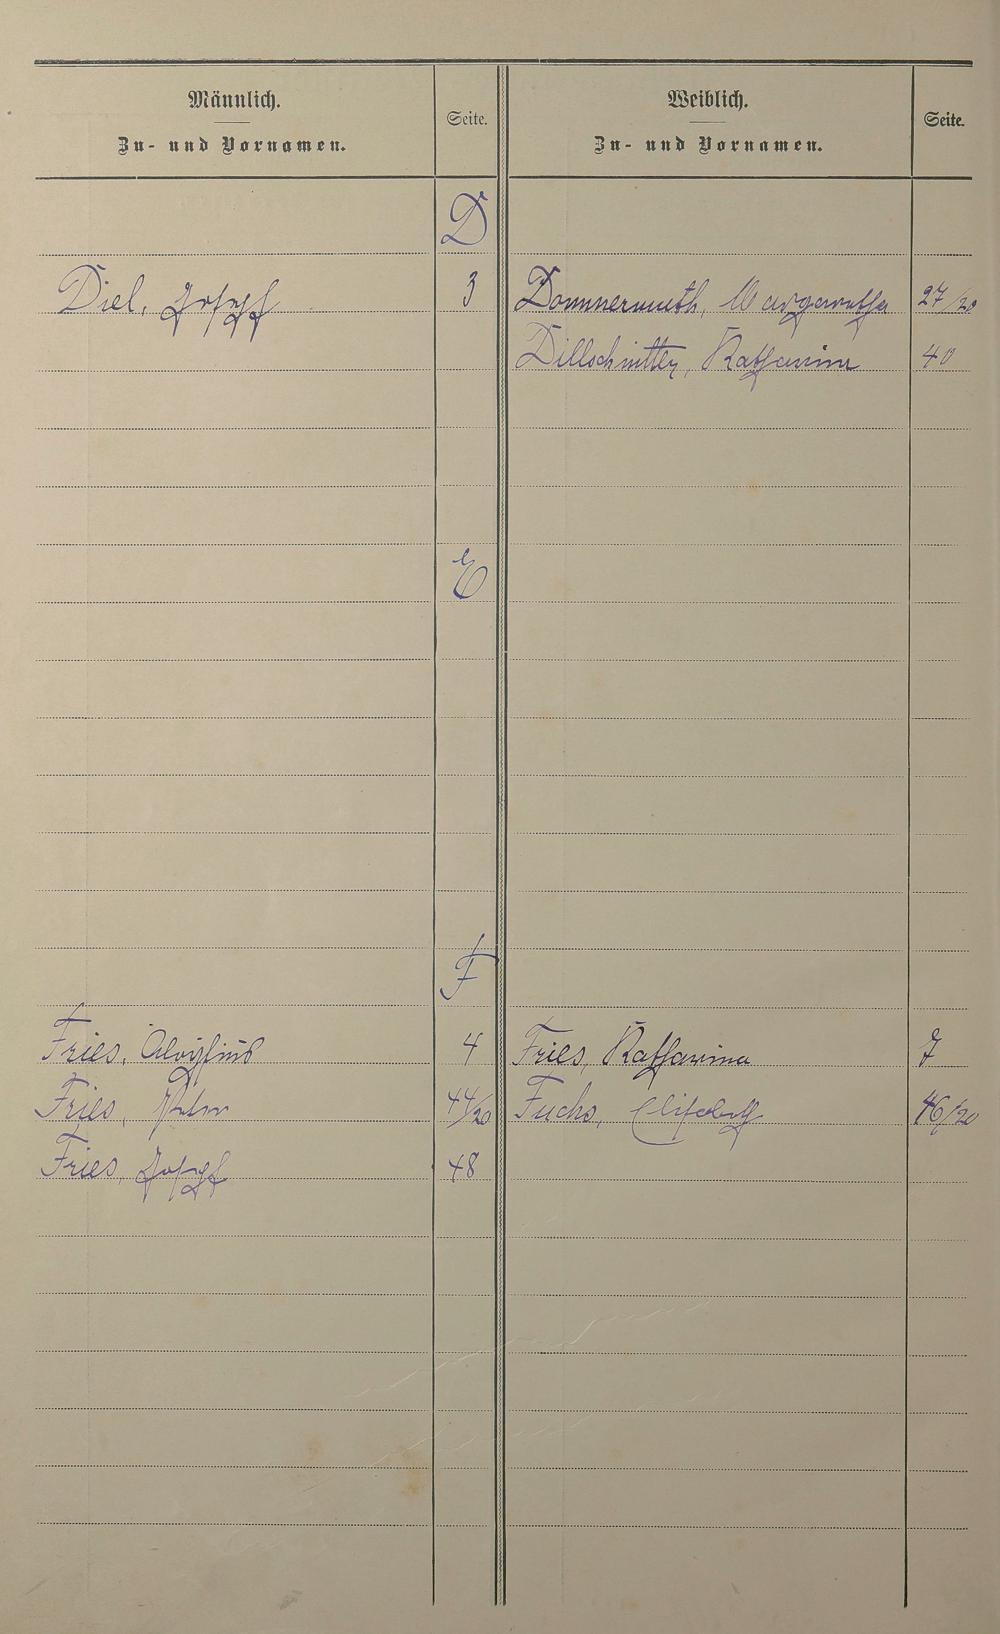 Männlich.
Zu- und Vornamen.
Seite.
Weiblich.
Zu- und Vornamen.
Seite.
D
Diel, Joseph 3 Dommermuth, Margaretha 27/20
Dillschnitter, Katharina 40
E
F
Fries, Aloysius 4 Fries, Katharina 7
Fries, Peter 44/20 Fuchs, Elisabeth 46/20
Fries, Joseph 48